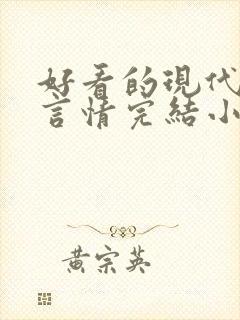 好看的現代
言情完結小
黄宗英